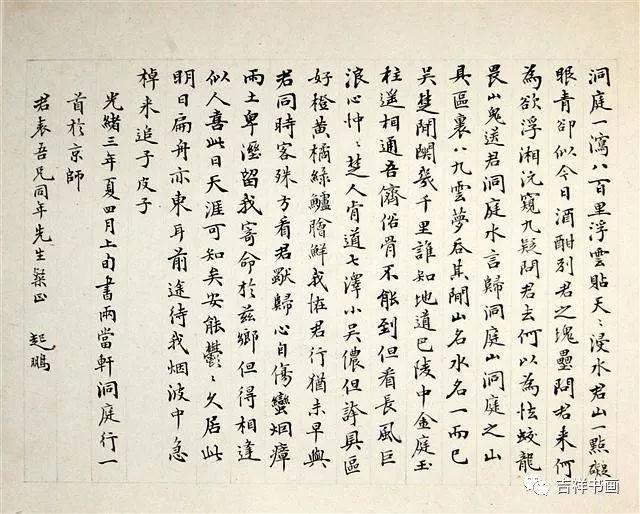 洞庭一瀉八百里浮雲貼天〻浸水君山一點礙
眼青卻似今日酒酣別君之塊壘問君來何
為欲浮湘沅窺九疑問君去何以為怯蛟龍
畏山鬼送君洞庭水言歸洞庭山洞庭之山
具區裏八九雲夢吞其間山名水名一而已
吳楚開闊幾千里誰知地道巴陵中金庭玉
柱遥相通吾儕俗骨不能到但看長風巨
浪心忡〻楚人肯道七澤小吳儂但誇具區
好橙黃橘綠鱸膾鮮我怪君行猶未早與
君同時客殊方看君獸歸心自傷蠻烟瘴
雨土卑溼留我寄命於兹鄉但得相逢
似人喜此日天涯可知矣安能鬱〻久居此
明日扁舟亦東耳前途待我烟波中急
棹来追子皮子
光緒三年夏四月上旬書兩當軒洞庭行一
首於京師
君表吾兄同年先生粲正 起鵬
吉祥书画